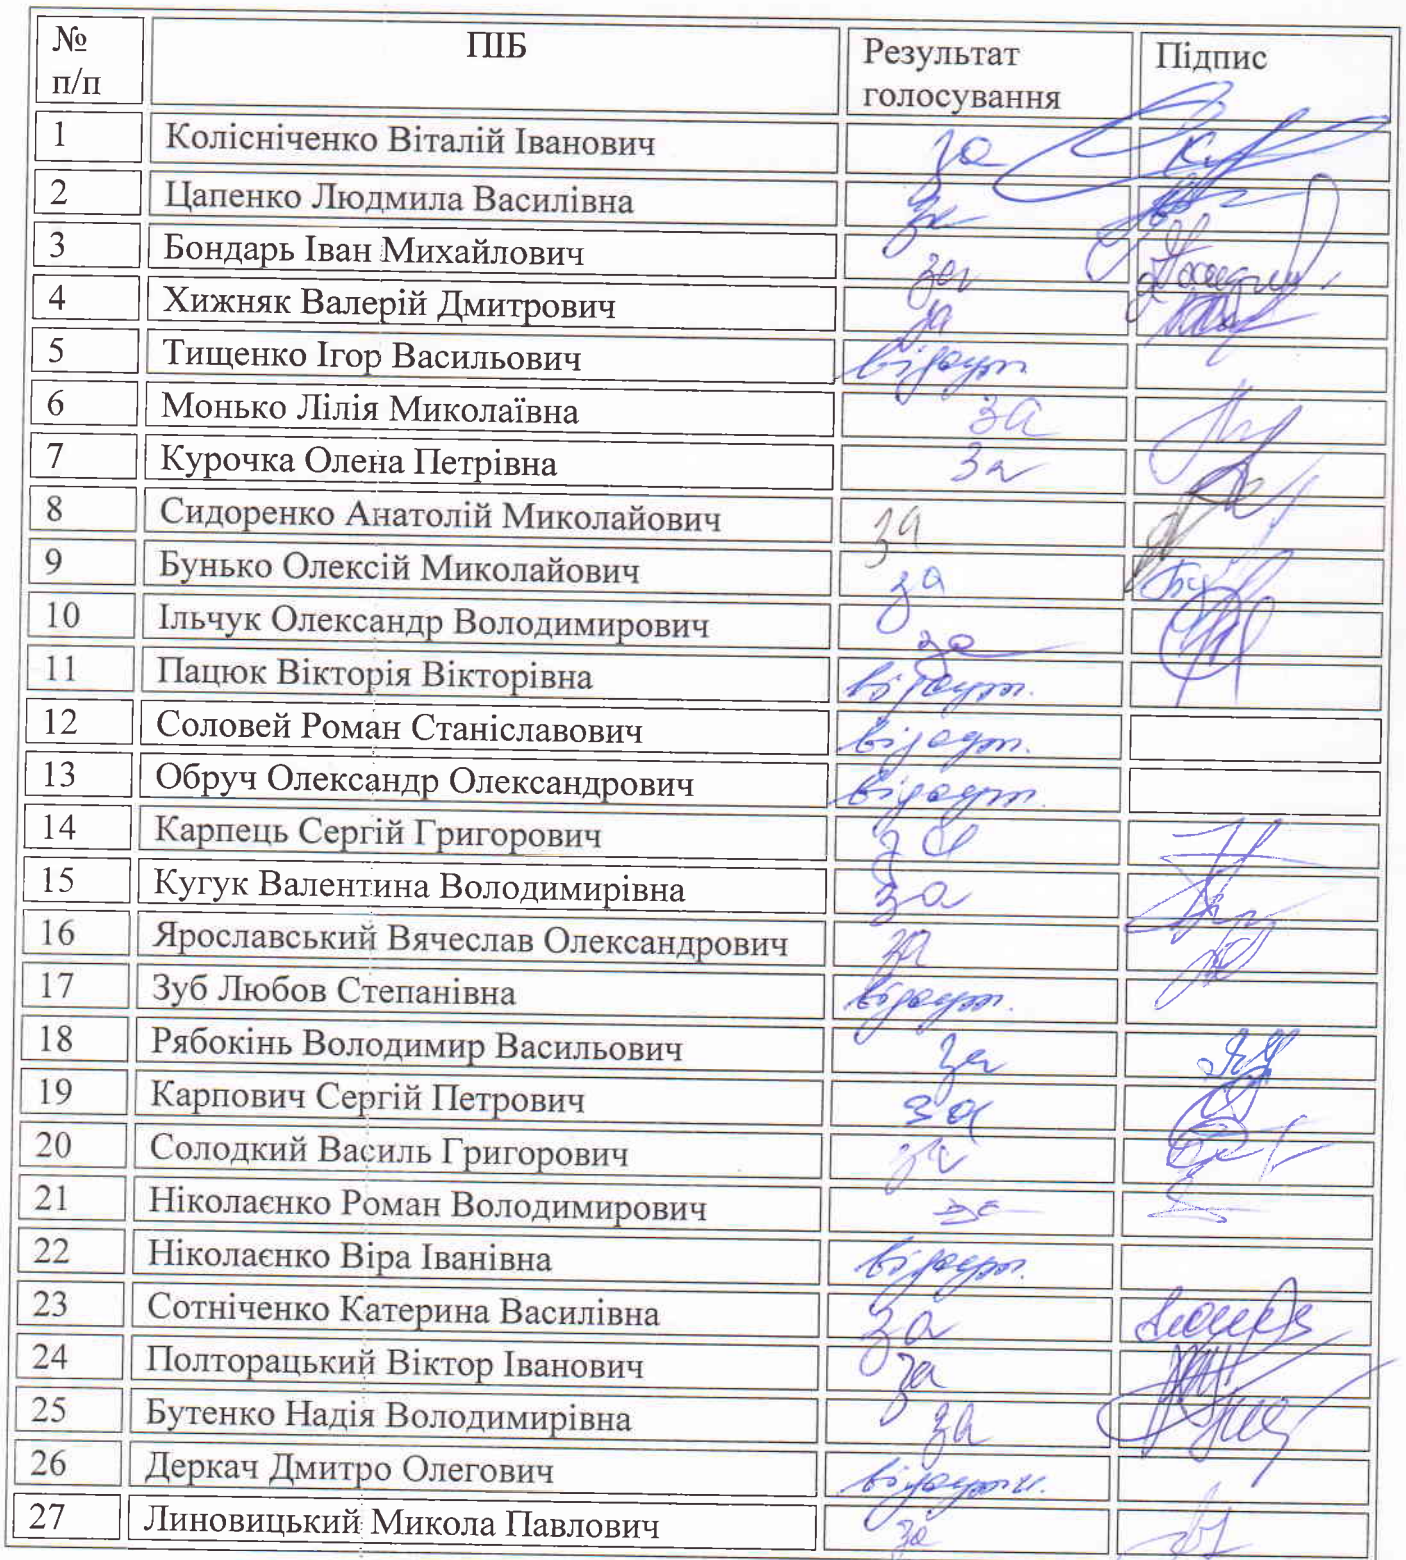 № п/п ПІБ Результат голосування Підпис
1 Колісніченко Віталій Іванович за
2 Цапенко Людмила Василівна за
3 Бондарь Іван Михайлович за
4 Хижняк Валерій Дмитрович за
5 Тищенко Ігор Васильович відсутн
6 Монько Лілія Миколаївна за
7 Курочка Олена Петрівна за
8 Сидоренко Анатолій Миколайович за
9 Бунько Олексій Миколайович за
10 Ільчук Олександр Володимирович за
11 Пацюк Вікторія Вікторівна відсутн.
12 Соловей Роман Станіславович відсутн.
13 Обруч Олександр Олександрович відсутн.
14 Карпець Сергій Григорович за
15 Кугук Валентина Володимирівна за
16 Ярославський Вячеслав Олександрович за
17 Зуб Любов Степанівна відсутн.
18 Рябокінь Володимир Васильович за
19 Карпович Сергій Петрович за
20 Солодкий Василь Григорович за
21 Ніколаєнко Роман Володимирович за
22 Ніколаєнко Віра Іванівна відсутн.
23 Сотніченко Катерина Василівна за
24 Полторацький Віктор Іванович за
25 Бутенко Надія Володимирівна за
26 Деркач Дмитро Олегович відсутн.
27 Линовицький Микола Павлович за